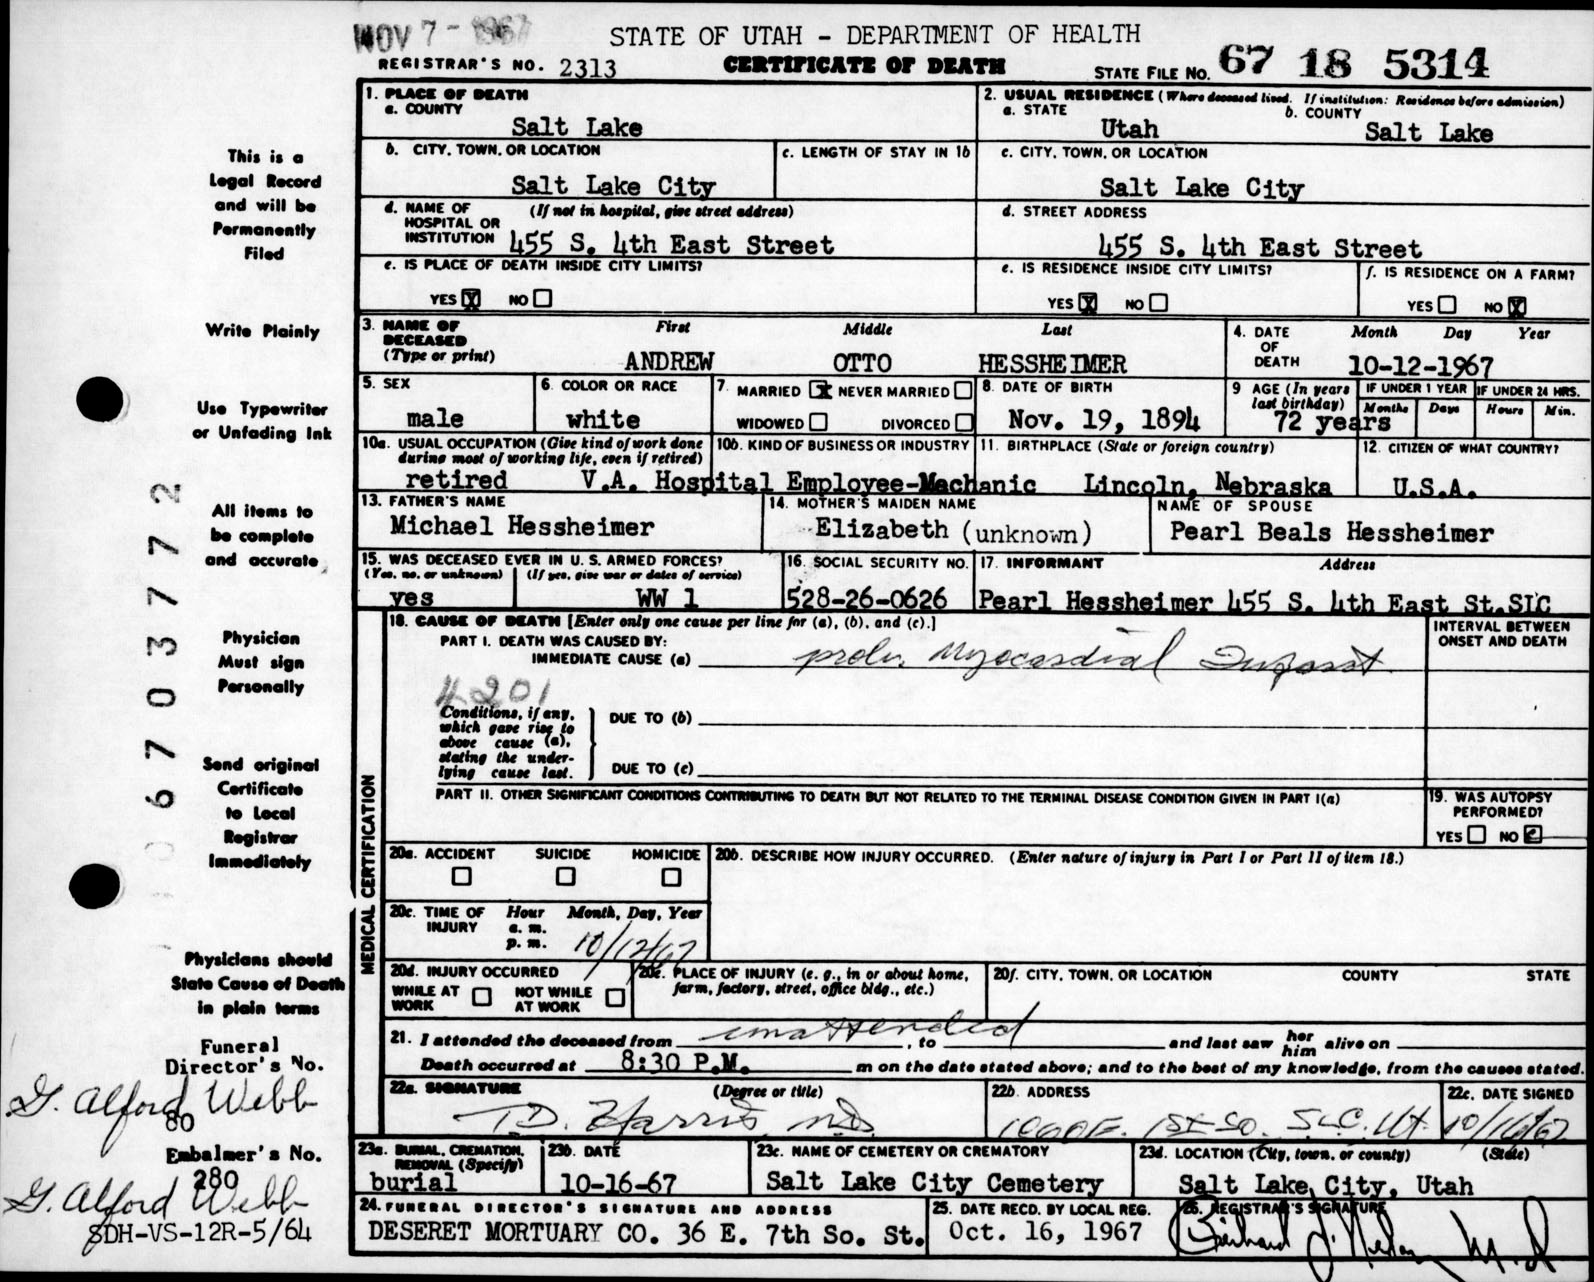 NOV 7 - 1967
STATE OF UTAH - DEPARTMENT OF HEALTH
REGISTRAR'S NO. 2313
CERTIFICATE OF DEATH
STATE FILE NO. 67 18 5314
This is a
Legal Record
and will be
Permanently
Filed
Write Plainly
Use Typewriter
or Unfading Ink
All items to
be complete
and accurate
Physician
Must sign
Personally
Send original
Certificate
to Local
Registrar
Immediately
Physicians should
State Cause of Death
in plain terms
Funeral
Director's No.
G. Alford Webb
80
Embalmer's No.
280
G. Alford Webb
SDH-VS-12R-5/64
0670 3772
1. PLACE OF DEATH
a. COUNTY
Salt Lake
2. USUAL RESIDENCE (Where deceased lived. If institution: Residence before admission)
a. STATE b. COUNTY
Utah Salt Lake
b. CITY, TOWN, OR LOCATION
Salt Lake City
c. LENGTH OF STAY IN 1b
c. CITY, TOWN, OR LOCATION
Salt Lake City
d. NAME OF (If not in hospital, give street address)
HOSPITAL OR
INSTITUTION 455 S. 4th East Street
d. STREET ADDRESS
455 S. 4th East Street
e. IS PLACE OF DEATH INSIDE CITY LIMITS?
YES X NO
e. IS RESIDENCE INSIDE CITY LIMITS?
YES X NO
f. IS RESIDENCE ON A FARM?
YES NO X
3. NAME OF First Middle Last
DECEASED
(Type or print) ANDREW OTTO HESSHEIMER
4. DATE Month Day Year
OF
DEATH 10-12-1967
5. SEX
male
6. COLOR OR RACE
white
7. MARRIED X NEVER MARRIED
WIDOWED DIVORCED
8. DATE OF BIRTH
Nov. 19, 1894
9 AGE (In years
last birthday)
72 years
IF UNDER 1 YEAR
Months Days
IF UNDER 24 HRS.
Hours Min.
10a. USUAL OCCUPATION (Give kind of work done
during most of working life, even if retired)
retired
10b. KIND OF BUSINESS OR INDUSTRY
V.A. Hospital Employee-Mechanic
11. BIRTHPLACE (State or foreign country)
Lincoln, Nebraska
12. CITIZEN OF WHAT COUNTRY?
U.S.A.
13. FATHER'S NAME
Michael Hessheimer
14. MOTHER'S MAIDEN NAME
Elizabeth (unknown)
NAME OF SPOUSE
Pearl Beals Hessheimer
15. WAS DECEASED EVER IN U. S. ARMED FORCES?
(Yes, no, or unknown) (If yes, give war or dates of service)
yes WW 1
16. SOCIAL SECURITY NO.
528-26-0626
17. INFORMANT Address
Pearl Hessheimer 455 S. 4th East St.SlC
MEDICAL CERTIFICATION
18. CAUSE OF DEATH [Enter only one cause per line for (a), (b), and (c).]
PART I. DEATH WAS CAUSED BY:
IMMEDIATE CAUSE (a) prob. Myocardial Infarct
INTERVAL BETWEEN
ONSET AND DEATH
4201
Conditions, if any,
which gave rise to
above cause (a),
stating the under-
lying cause last.
DUE TO (b)
DUE TO (c)
PART II. OTHER SIGNIFICANT CONDITIONS CONTRIBUTING TO DEATH BUT NOT RELATED TO THE TERMINAL DISEASE CONDITION GIVEN IN PART I(a)
19. WAS AUTOPSY
PERFORMED?
YES NO
20a. ACCIDENT SUICIDE HOMICIDE
20b. DESCRIBE HOW INJURY OCCURRED. (Enter nature of injury in Part I or Part II of item 18.)
20c. TIME OF Hour Month, Day, Year
INJURY a. m.
p. m. 10/12/67
20d. INJURY OCCURRED
WHILE AT NOT WHILE
WORK AT WORK
20e. PLACE OF INJURY (e. g., in or about home,
farm, factory, street, office bldg., etc.)
20f. CITY, TOWN, OR LOCATION COUNTY STATE
21. I attended the deceased from unattended, to and last saw her him alive on
Death occurred at 8:30 P.M. m on the date stated above; and to the best of my knowledge, from the causes stated.
22a. SIGNATURE (Degree or title)
T.D. Harris, M.D.
22b. ADDRESS
1060 E. 1st So. S.L.C. Ut.
22c. DATE SIGNED
10/16/67
23a. BURIAL, CREMATION,
REMOVAL (Specify)
burial
23b. DATE
10-16-67
23c. NAME OF CEMETERY OR CREMATORY
Salt Lake City Cemetery
23d. LOCATION (City, town, or county) (State)
Salt Lake City, Utah
24. FUNERAL DIRECTOR'S SIGNATURE AND ADDRESS
DESERET MORTUARY CO. 36 E. 7th So. St.
25. DATE RECD. BY LOCAL REG.
Oct. 16, 1967
26. REGISTRAR'S SIGNATURE
M.D